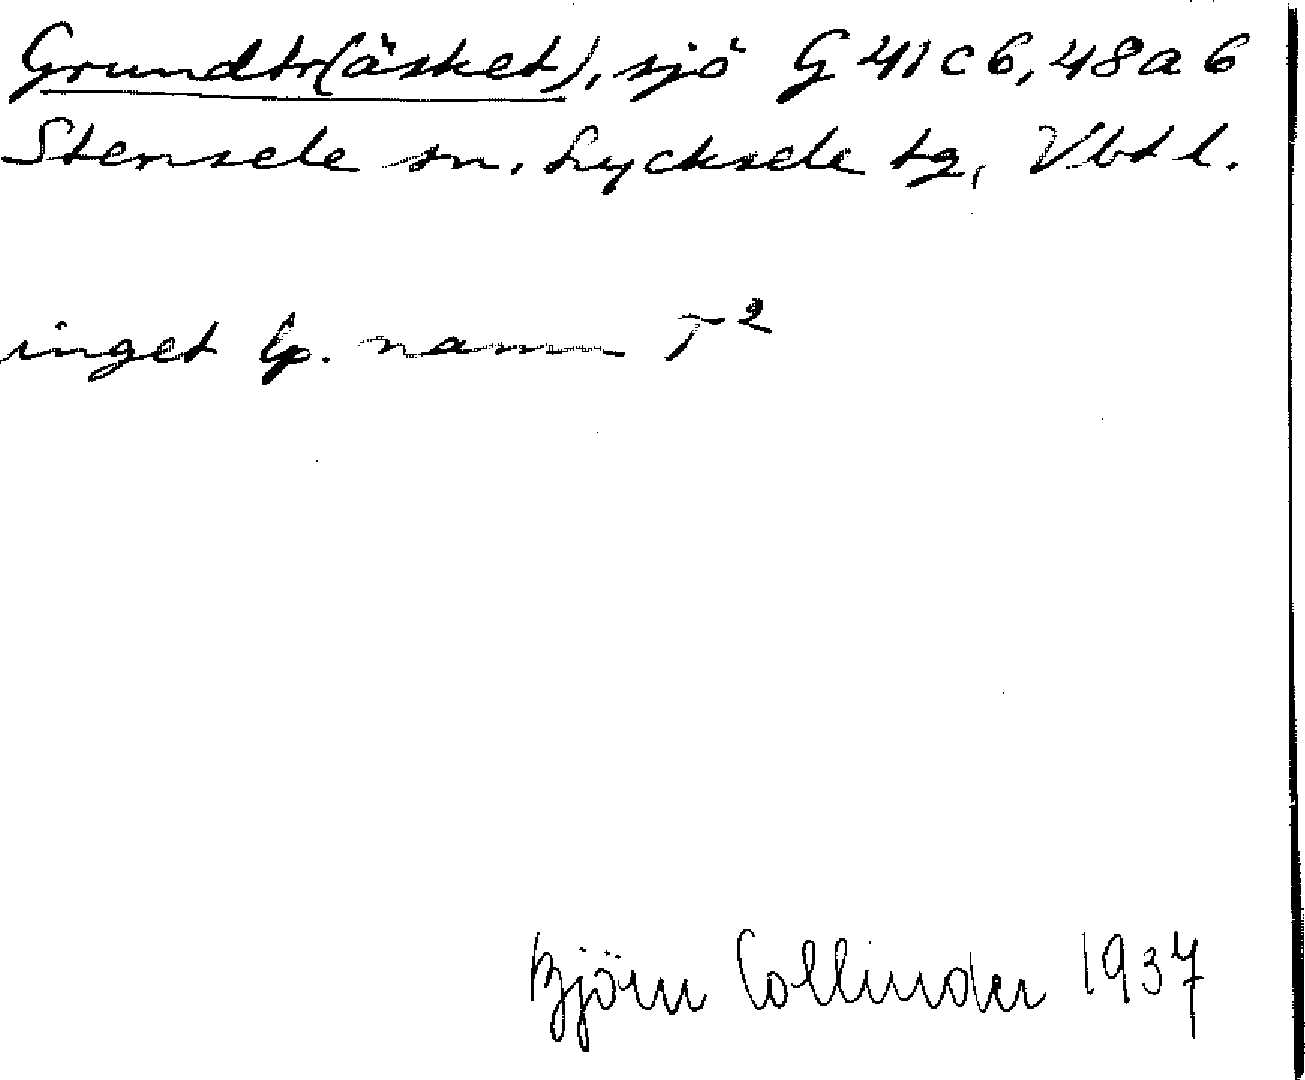 Grundtr(äsket), sjö G 41 c 6, 48 a 6
Stensele sn. Lycksele tg, Vbtl.
inget lp. namn T²
Björn Collinder 1937